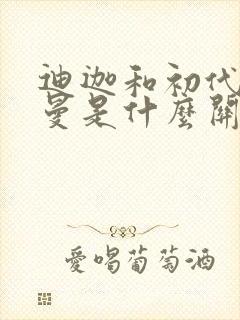 迪迦和初代
曼是什麼關
愛喝葡萄酒